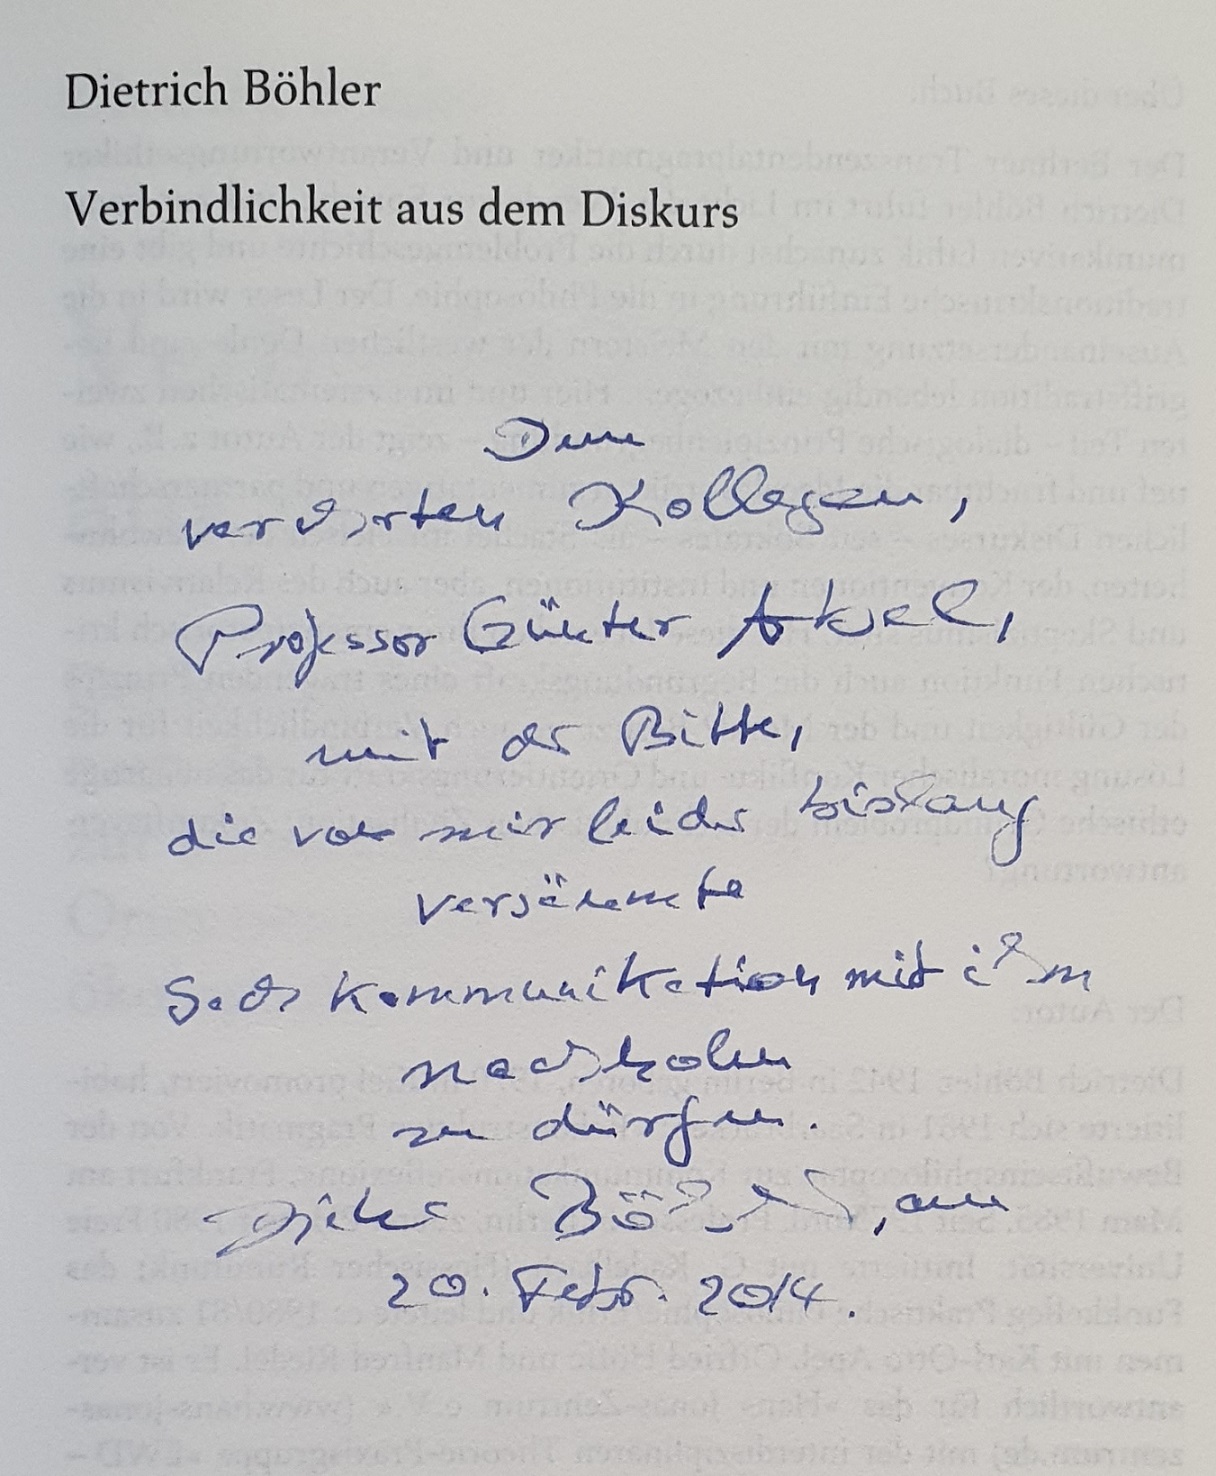 Dietrich Böhler
Verbindlichkeit aus dem Diskurs
Dem
verehrten Kollegen,
Professor Günter Abel,
mit der Bitte,
die von mir leider bislang
versäumte
Sachkommunikation mit ihm
nachholen
zu dürfen.
Dietrich Böhler, am
20. Febr. 2014.